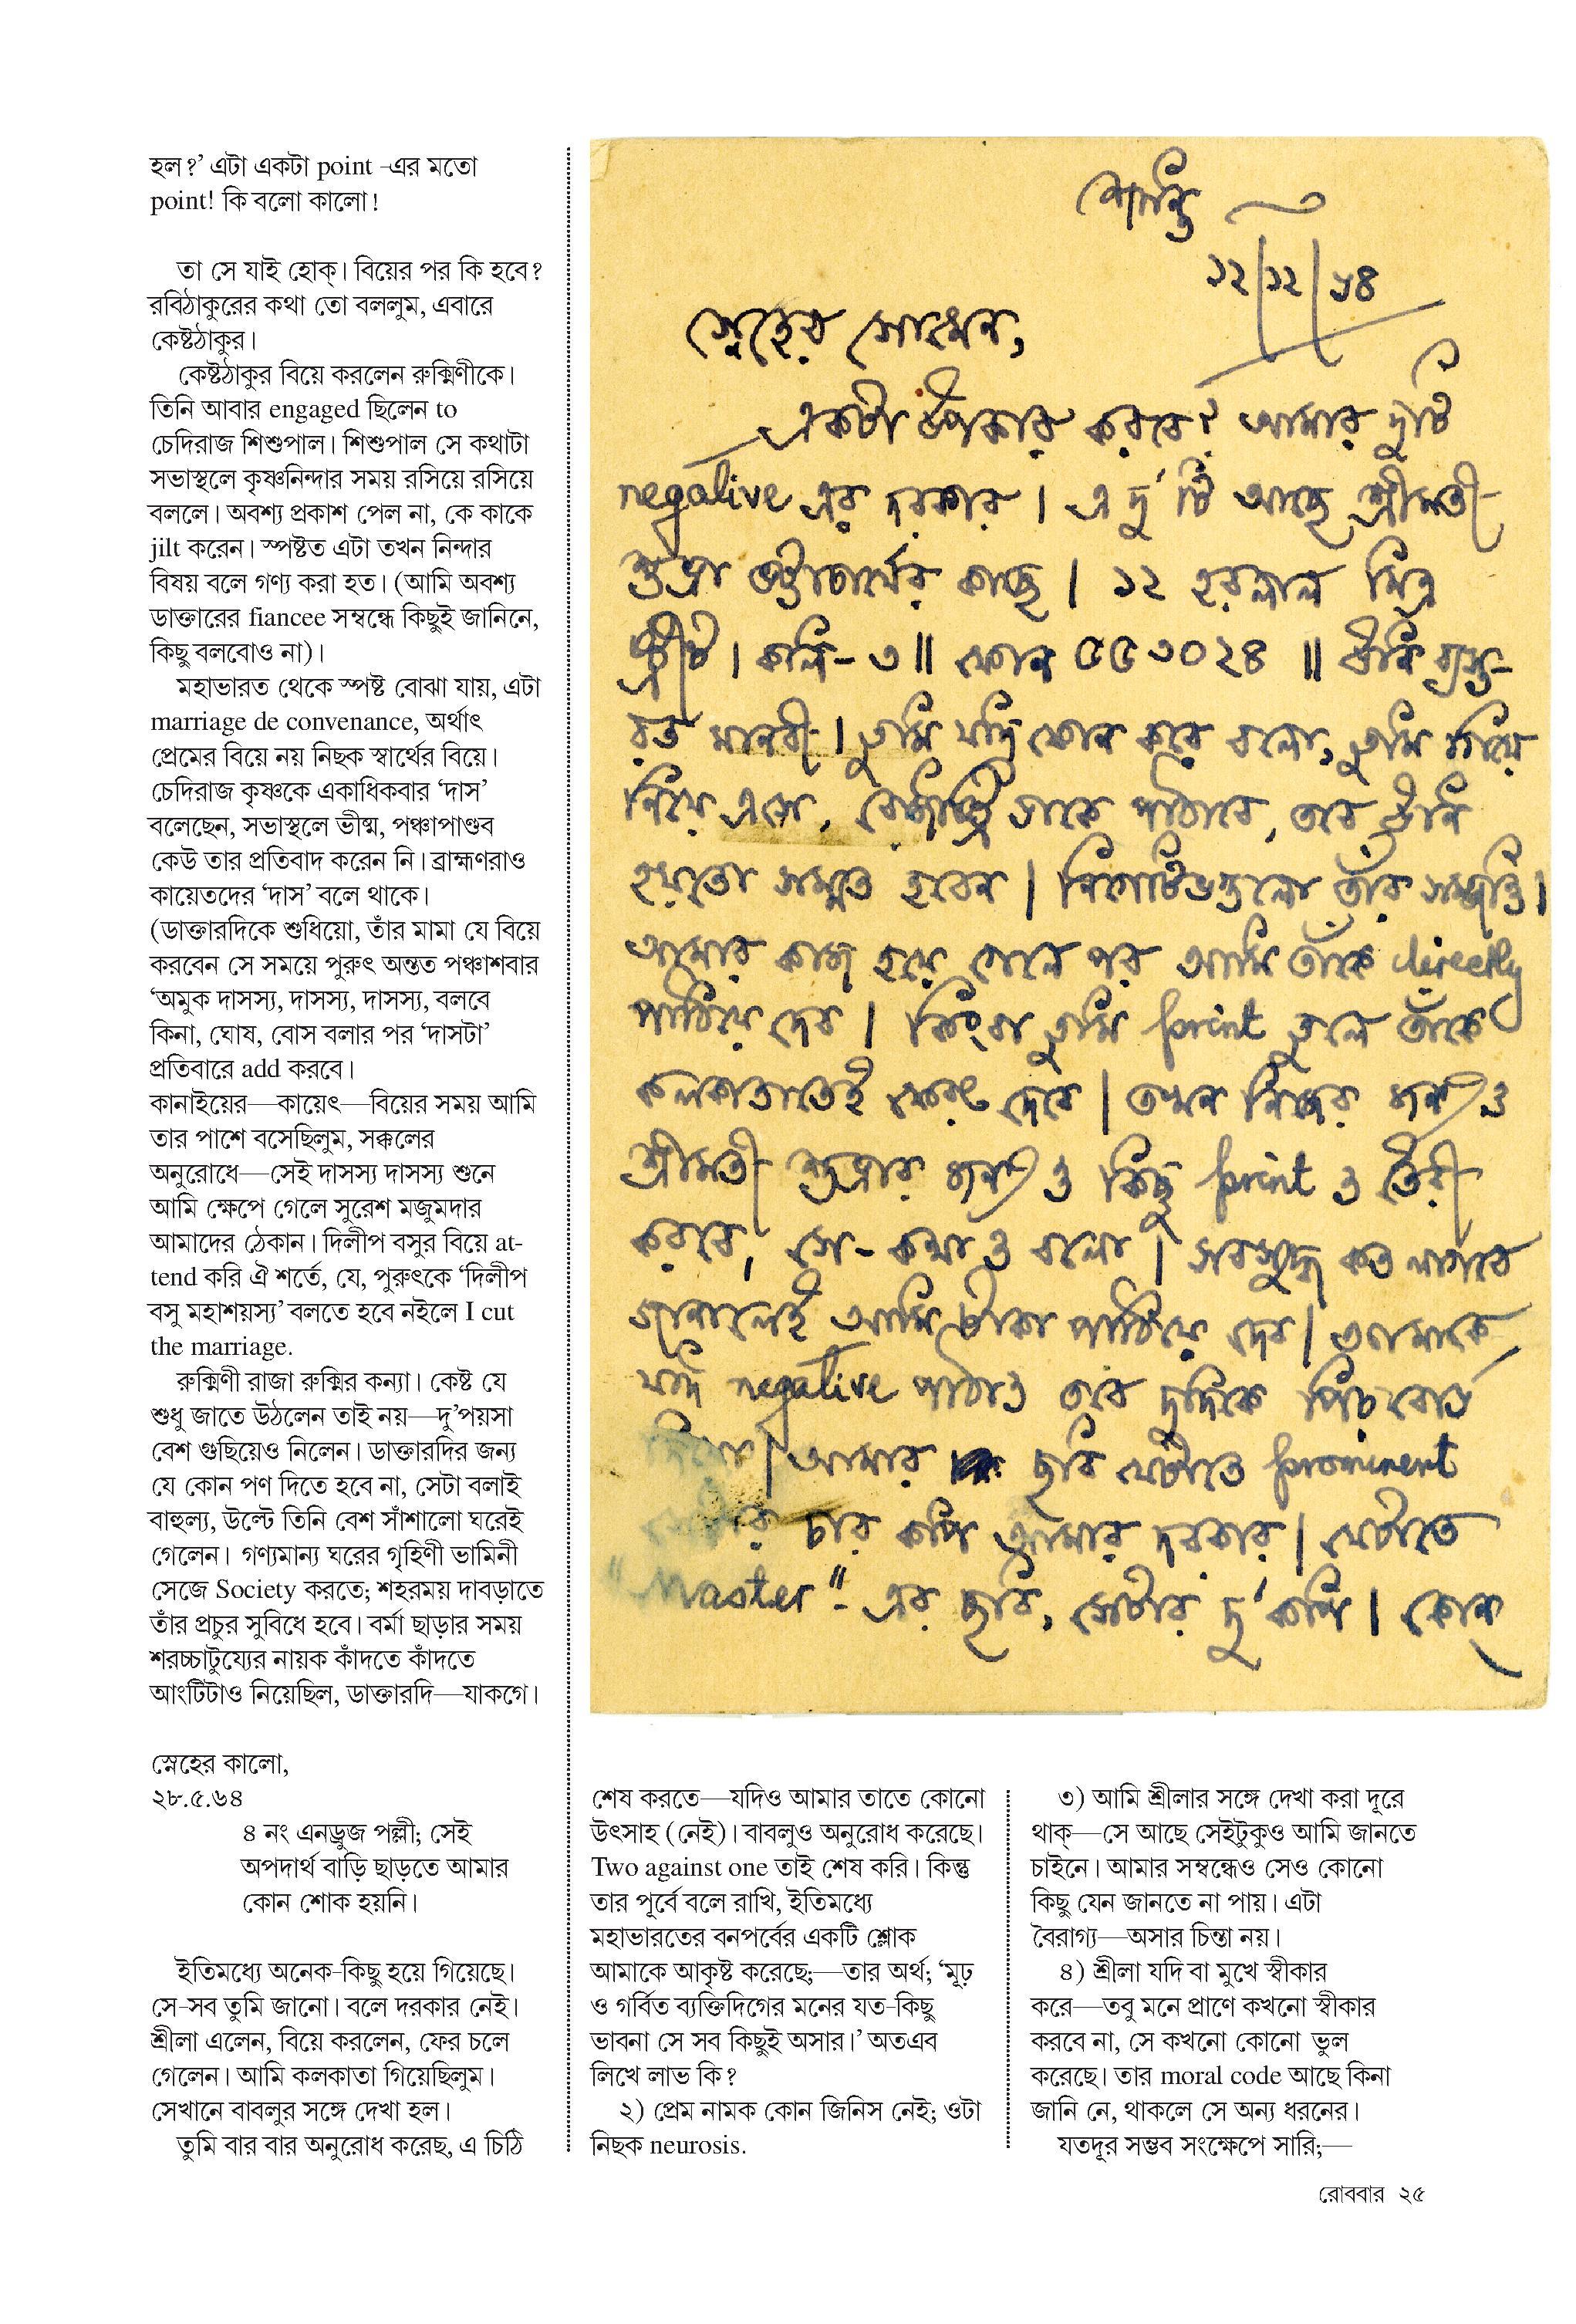 হল?’ এটা একটা point -এর মতো
point! কি বলো কালো!
তা সে যাই হোক্। বিয়ের পর কি হবে?
রবিঠাকুরের কথা তো বললুম, এবারে
কেষ্টঠাকুর।
কেষ্টঠাকুর বিয়ে করলেন রুক্মিণীকে।
তিনি আবার engaged ছিলেন to
চেদিরাজ শিশুপাল। শিশুপাল সে কথাটা
সভাস্থলে কৃষ্ণনিন্দার সময় রসিয়ে রসিয়ে
বললে। অবশ্য প্রকাশ পেল না, কে কাকে
jilt করেন। স্পষ্টত এটা তখন নিন্দার
বিষয় বলে গণ্য করা হত। (আমি অবশ্য
ডাক্তারের fiancee সম্বন্ধে কিছুই জানিনে,
কিছু বলবোও না)।
মহাভারত থেকে স্পষ্ট বোঝা যায়, এটা
marriage de convenance, অর্থাৎ
প্রেমের বিয়ে নয় নিছক স্বার্থের বিয়ে।
চেদিরাজ কৃষ্ণকে একাধিকবার ‘দাস’
বলেছেন, সভাস্থলে ভীষ্ম, পঞ্চাপাণ্ডব
কেউ তার প্রতিবাদ করেন নি। ব্রাহ্মণরাও
কায়েতদের ‘দাস’ বলে থাকে।
(ডাক্তারদিকে শুধিয়ো, তাঁর মামা যে বিয়ে
করবেন সে সময়ে পুরুৎ অন্তত পঞ্চাশবার
‘অমুক দাসস্য, দাসস্য, দাসস্য, বলবে
কিনা, ঘোষ, বোস বলার পর ‘দাসটা’
প্রতিবারে add করবে।
কানাইয়ের—কায়েৎ—বিয়ের সময় আমি
তার পাশে বসেছিলুম, সক্কলের
অনুরোধে—সেই দাসস্য দাসস্য শুনে
আমি ক্ষেপে গেলে সুরেশ মজুমদার
আমাদের ঠেকান। দিলীপ বসুর বিয়ে at-
tend করি ঐ শর্তে, যে, পুরুৎকে ‘দিলীপ
বসু মহাশয়স্য’ বলতে হবে নইলে I cut
the marriage.
রুক্মিণী রাজা রুক্মির কন্যা। কেষ্ট যে
শুধু জাতে উঠলেন তাই নয়—দু’পয়সা
বেশ গুছিয়েও নিলেন। ডাক্তারদির জন্য
যে কোন পণ দিতে হবে না, সেটা বলাই
বাহুল্য, উল্টে তিনি বেশ সাঁশালো ঘরেই
গেলেন। গণ্যমান্য ঘরের গৃহিণী ভামিনী
সেজে Society করতে; শহরময় দাবড়াতে
তাঁর প্রচুর সুবিধে হবে। বর্মা ছাড়ার সময়
শরচ্চাটুয্যের নায়ক কাঁদতে কাঁদতে
আংটিটাও নিয়েছিল, ডাক্তারদি—যাকগে।
স্নেহের কালো,
২৮.৫.৬৪
৪ নং এনড্রুজ পল্লী; সেই
অপদার্থ বাড়ি ছাড়তে আমার
কোন শোক হয়নি।
ইতিমধ্যে অনেক-কিছু হয়ে গিয়েছে।
সে-সব তুমি জানো। বলে দরকার নেই।
শ্রীলা এলেন, বিয়ে করলেন, ফের চলে
গেলেন। আমি কলকাতা গিয়েছিলুম।
সেখানে বাবলুর সঙ্গে দেখা হল।
তুমি বার বার অনুরোধ করেছ, এ চিঠি
শান্তি
১২/১২/৬৪
স্নেহের
একটা উপকার করবে? আমার দুটি
negative এর দরকার। এ দু'টি আছে শ্রীমতী
শুভ্রা ভট্টাচার্যের কাছে। ১২ হরলাল মিত্র
স্ট্রীট। কলি-৩॥ ফোন ৫৫৩০২৪ ॥ উনি ব্যস্ত-
মানবী। তুমি যদি ফোন করে বলো, তুমি গিয়ে
নিয়ে এসে, রেজিস্ট্রি ডাকে পাঠাবে, তবে উনি
হয়তো সম্মত হবেন। নিগেটিভগুলো তাঁর সম্পত্তি।
আমার কাজ হয়ে গেলে পর আমি তাঁকে directly
পাঠিয়ে দেব। কিংবা তুমি print তুলে তাঁকে
কলকাতাতেই ফেরৎ দেবে। তখন নিজের জন্য ও
শ্রীমতী শুভ্রার জন্য ও কিছু print ও তৈরী
করাবে, সে-কথা ও বলো। সবসুদ্ধ কত লাগবে
জানালেই আমি টাকা পাঠিয়ে দেব। আমাকে
যদি negative পাঠাও তবে দুদিকে পিচবোর্ড
দিয়ো। আমার ছবি যেটাতে prominent
সেটার চার কপি আমার দরকার। যেটাতে
"Master"-এর ছবি, সেটার দু'কপি। কোন
শেষ করতে—যদিও আমার তাতে কোনো
উৎসাহ (নেই)। বাবলুও অনুরোধ করেছে।
Two against one তাই শেষ করি। কিন্তু
তার পূর্বে বলে রাখি, ইতিমধ্যে
মহাভারতের বনপর্বের একটি শ্লোক
আমাকে আকৃষ্ট করেছে;—তার অর্থ; ‘মূঢ়
ও গর্বিত ব্যক্তিদিগের মনের যত-কিছু
ভাবনা সে সব কিছুই অসার।’ অতএব
লিখে লাভ কি?
২) প্রেম নামক কোন জিনিস নেই; ওটা
নিছক neurosis.
৩) আমি শ্রীলার সঙ্গে দেখা করা দূরে
থাক্—সে আছে সেইটুকুও আমি জানতে
চাইনে। আমার সম্বন্ধেও সেও কোনো
কিছু যেন জানতে না পায়। এটা
বৈরাগ্য—অসার চিন্তা নয়।
৪) শ্রীলা যদি বা মুখে স্বীকার
করে—তবু মনে প্রাণে কখনো স্বীকার
করবে না, সে কখনো কোনো ভুল
করেছে। তার moral code আছে কিনা
জানি নে, থাকলে সে অন্য ধরনের।
যতদূর সম্ভব সংক্ষেপে সারি;—
রোববার ২৫